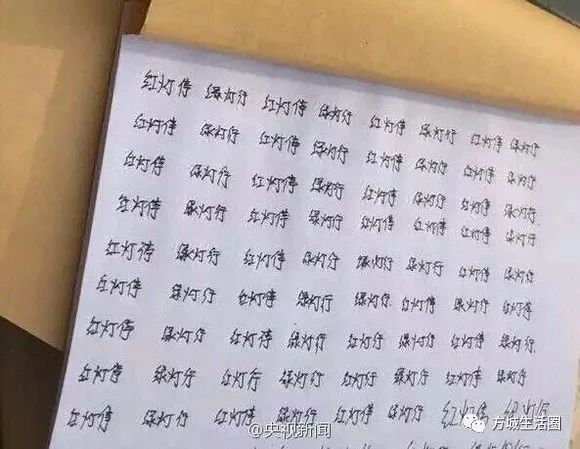 红灯停 绿灯行 红灯停 绿灯行 红灯停 绿灯行 红灯停 绿灯行
红灯停 绿灯行 红灯停 绿灯行 红灯停 绿灯行 红灯停 绿灯行
红灯停 绿灯行 红灯停 绿灯行 红灯停 绿灯行 红灯停 绿灯行
红灯停 绿灯行 红灯停 绿灯行 红灯停 绿灯行 红灯停 绿灯行
红灯停 绿灯行 红灯停 绿灯行 绿灯行 绿灯行 红灯停 绿灯行
红灯停 绿灯行 红灯停 绿灯行 绿灯 红灯停 绿灯行 红灯停
红灯停 绿灯行 红灯停 绿灯行 红灯行 绿灯行 红灯停 绿灯行
红灯停 绿灯行 红灯行 绿灯行 红灯行 绿灯行 红灯停 绿灯行
红灯停 绿灯行 红灯停 绿灯行 红灯停 绿灯行 红灯停 绿灯行
@央视新闻
方城生活圈